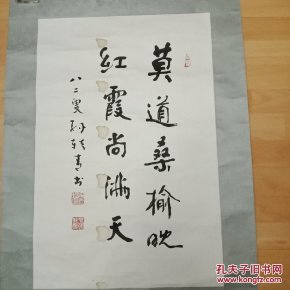 莫道桑榆晚
红霞尚满天
八二叟孙轶青书
孔夫子旧书网